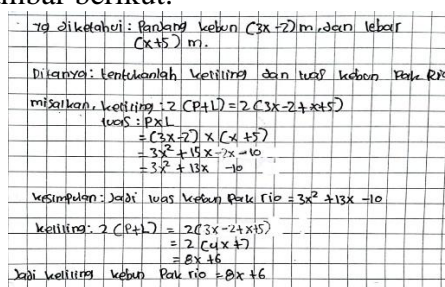 mbar berikut.
yg diketahui : Panjang kebun (3x-2)m, dan lebar
(x+5) m.
Ditanya : tentukanlah keliling dan luas kebun Pak Rio
misalkan, keliling : 2 (P+L) = 2 (3x-2+x+5)
luas : PXL
= (3x-2) x (x+5)
= 3x² + 15x -2x -10
= 3x² + 13x -10
kesimpulan : Jadi luas kebun Pak rio = 3x² +13x -10
keliling : 2 (P+L) = 2(3x-2+x+5)
= 2 (4x+
= 8x +6
Jadi keliling kebun Pak rio = 8x +6